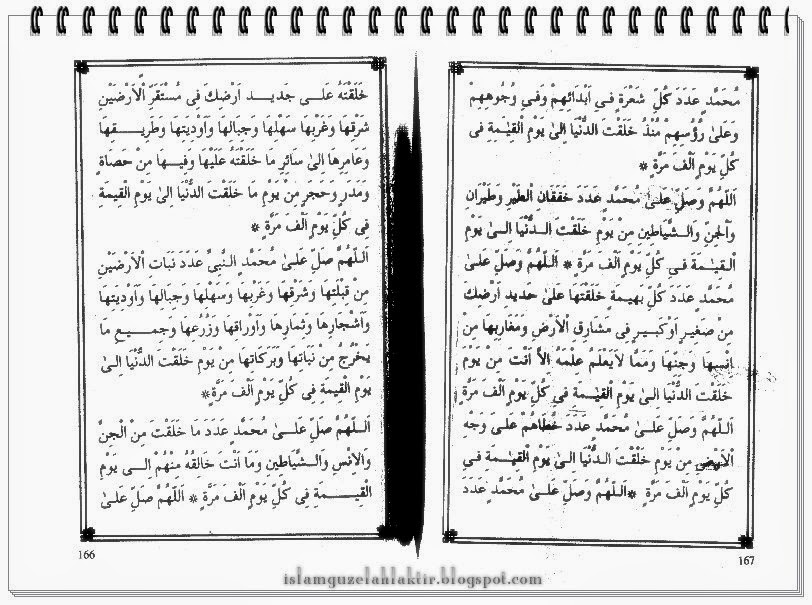 خَلَقْتَهُ عَلٰى جَدِيدِ اَرْضِكَ فٖى مُسْتَقَرِّ الْاَرَضٖينَ
شَرْقِهَا وَغَرْبِهَا سَهْلِهَا وَجِبَالِهَا وَاَوْدِيَتِهَا وَطَرٖيقِهَا
وَعَامِرِهَا اِلٰى سَائِرِ مَا خَلَقْتَهُ عَلَيْهَا وَفٖيهَا مِنْ حَصَاةٍ
وَمَدَرٍ وَحَجَرٍ مِنْ يَوْمِ مَا خَلَقْتَ الدُّنْيَا اِلٰى يَوْمِ الْقِيٰمَةِ
فٖى كُلِّ يَوْمٍ اَلْفَ مَرَّةٍ *
اَللّٰهُمَّ صَلِّ عَلٰى مُحَمَّدٍ النَّبِىِّ عَدَدَ نَبَاتِ الْاَرَضٖينَ
مِنْ قِبْلَتِهَا وَشَرْقِهَا وَغَرْبِهَا وَسَهْلِهَا وَجِبَالِهَا وَاَوْدِيَتِهَا
وَاَشْجَارِهَا وَثِمَارِهَا وَاَوْرَاقِهَا وَزُرُعِهَا وَجَمٖيعِ مَا
يَخْرُجُ مِنْ نَبَاتِهَا وَبَرَكَاتِهَا مِنْ يَوْمِ خَلَقْتَ الدُّنْيَا اِلٰى
يَوْمِ الْقِيٰمَةِ فٖى كُلِّ يَوْمٍ اَلْفَ مَرَّةٍ *
اَللّٰهُمَّ صَلِّ عَلٰى مُحَمَّدٍ عَدَدَ مَا خَلَقْتَ مِنَ الْجِنِّ
وَالْاِنْسِ وَالشَّيَاطٖينِ وَمَا اَنْتَ خَالِقُهُ مِنْهُمْ اِلٰى يَوْمِ
الْقِيٰمَةِ فٖى كُلِّ يَوْمٍ اَلْفَ مَرَّةٍ * اَللّٰهُمَّ صَلِّ عَلٰى
166
مُحَمَّدٍ عَدَدَ كُلِّ شَعْرَةٍ فٖى اَبْدَانِهِمْ وَفٖى وُجُوهِهِمْ
وَعَلٰى رُؤُسِهِمْ مُنْذُ خَلَقْتَ الدُّنْيَا اِلٰى يَوْمِ الْقِيٰمَةِ فٖى
كُلِّ يَوْمٍ اَلْفَ مَرَّةٍ *
اَللّٰهُمَّ وَصَلِّ عَلٰى مُحَمَّدٍ عَدَدَ خَفَقَانِ الطَّيْرِ وَطَيْرَانِ
وَالْجِنِّ وَالشَّيَاطٖينِ مِنْ يَوْمِ خَلَقْتَ الدُّنْيَا اِلٰى يَوْمِ
الْقِيٰمَةِ فٖى كُلِّ يَوْمٍ اَلْفَ مَرَّةٍ * اَللّٰهُمَّ وَصَلِّ عَلٰى
مُحَمَّدٍ عَدَدَ كُلِّ بَهٖيمَةٍ خَلَقْتَهَا عَلٰى جَدٖيدِ اَرْضِكَ
مِنْ صَغٖيرٍ اَوْ كَبٖيرٍ فٖى مَشَارِقِ الْاَرْضِ وَمَغَارِبِهَا مِنْ
اِنْسِهَا وَجِنِّهَا وَمِمَّا لَا يَعْلَمُ عِلْمَهُ اِلَّا اَنْتَ مِنْ يَوْمِ
خَلَقْتَ الدُّنْيَا اِلٰى يَوْمِ الْقِيٰمَةِ فٖى كُلِّ يَوْمٍ اَلْفَ مَرَّةٍ
اَللّٰهُمَّ وَصَلِّ عَلٰى مُحَمَّدٍ عَدَدَ خُطَاهُمْ عَلٰى وَجْهِ
الْاَرْضِ مِنْ يَوْمِ خَلَقْتَ الدُّنْيَا اِلٰى يَوْمِ الْقِيٰمَةِ فٖى
كُلِّ يَوْمٍ اَلْفَ مَرَّةٍ * اَللّٰهُمَّ وَصَلِّ عَلٰى مُحَمَّدٍ عَدَدَ
167
islamguzelahlaktir.blogspot.com